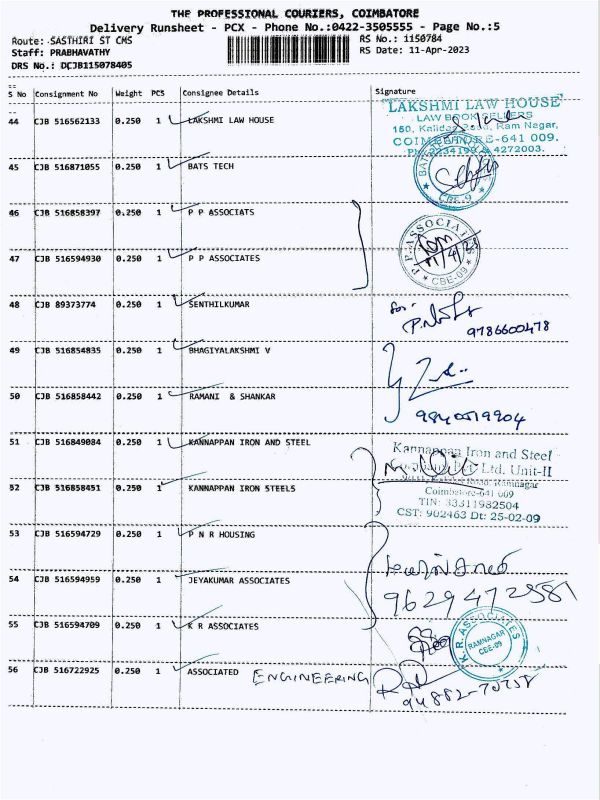 THE PROFESSIONAL COURIERS, COIMBATORE
Delivery Runsheet - PCX - Phone No.:0422-3505555 - Page No.:5
Route: SASTHIRI ST CMS RS No.: 1150784
Staff: PRABHAVATHY RS Date: 11-Apr-2023
DRS No.: DCJB115078405
S No Consignment No Weight PCS Consignee Details Signature
44 CJB 516562133 0.250 1 LAKSHMI LAW HOUSE
"LAKSHMI LAW HOUSE"
LAW BOOK SELLERS
Ram Nagar,
COIMBATORE-641 009.
4272003.
45 CJB 516871055 0.250 1 BATS TECH
CBE-9
46 CJB 516858397 0.250 1 P P ASSOCIATS
P.P. ASSOCIATES
CBE-09
47 CJB 516594930 0.250 1 P P ASSOCIATES
48 CJB 89373774 0.250 1 SENTHILKUMAR
9786600478
49 CJB 516854835 0.250 1 BHAGIYALAKSHMI V
50 CJB 516858442 0.250 1 RAMANI & SHANKAR
51 CJB 516849084 0.250 1 KANNAPPAN IRON AND STEEL
Kannappan Iron and Steel
Ltd. Unit-II
Ramnagar
Coimbatore-641 009
TIN: 33311982504
CST: 902463 Dt: 25-02-09
52 CJB 516858451 0.250 1 KANNAPPAN IRON STEELS
53 CJB 516594729 0.250 1 P N R HOUSING
54 CJB 516594959 0.250 1 JEYAKUMAR ASSOCIATES
55 CJB 516594709 0.250 1 K R ASSOCIATES
K.R. ASSOCIATES
RAMNAGAR
CBE-09
56 CJB 516722925 0.250 1 ASSOCIATED ENGINEERING